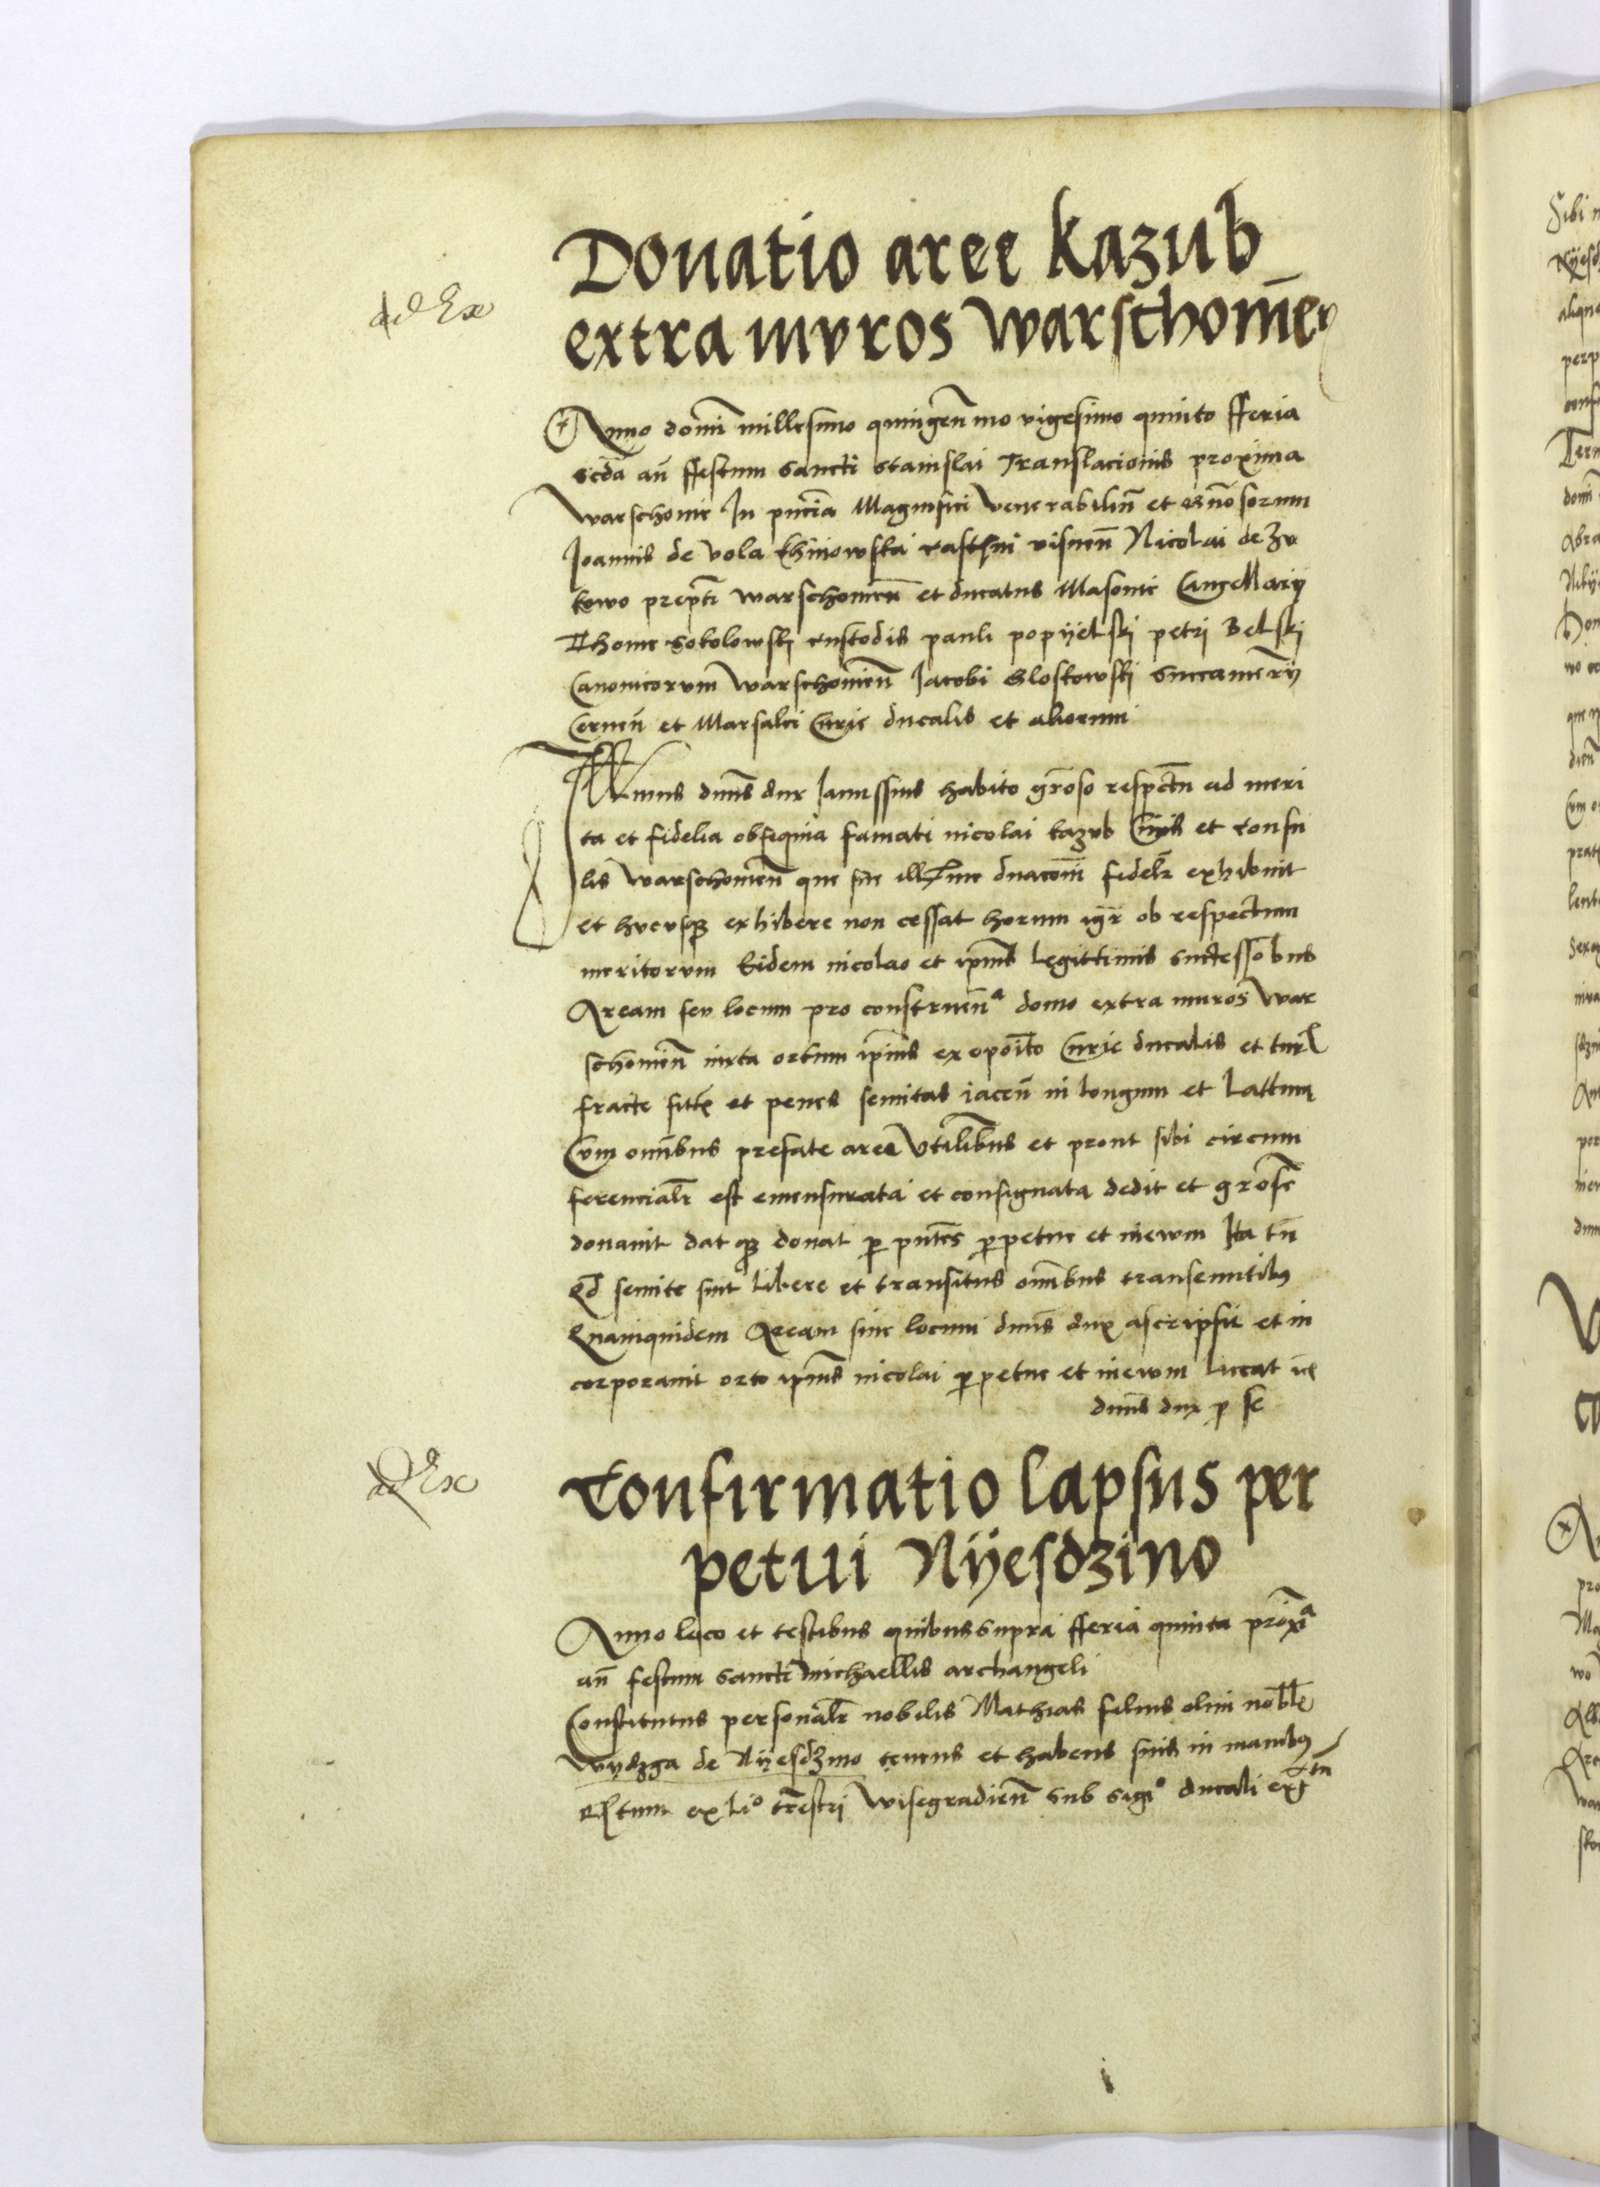 Donatio aree Kazub
ad Ex
extra mvros warschomeñ
Anno domī millesimo quingeñmo vigesimo quinto fferia
scda añ ffestum sancti stanislai Translacionis proxima
warschovie In pñcia Magnifici venerabiliū et gñosorum
Joannis de vola Chinowskai castlni visneñ Nicolai de Zu
kowo prepti warschomeñ et ducatus Masovie Cangellarij
Thome sokolowski custodis pauli popijelski petri Belski
Canonicorvm warschovieñ Jacobi Gloskowski succamerij
Cerneñ et Marsalci Curie ducalis et aliorum
Illmus dnūs dux Janussius habito grōso respctu ad meri
ta et fidelia obsequia famati nicolai kazub Civis et consu
lis warschomeñ que sue illme duacōni fidelr exhibuit
et hvcvsqꝫ exhibere non cessat horum igr ob respectum
meritorvm Eidem nicolao et ipius legittimis successobus
Aream seu locum pro construenª domo extra muros war
schovieñ iuxta ortum ipius ex oposito Curie ducalis et turl
fracte sitt et penes semitas iaceñ in longum et lattum
Cvm omībus prefate aree vtilibus et prout sibi circum
ferencialr est emensurata et consignata dedit et grōse
donavit dat qꝫ donat p pntes ppetue et inevvm Ita tñ
Qd semite sint libere et transitus omībus transeuntibꝰ
Quamquidem Aream sive locum dnūs dux ascripsit et in
corporavit orto ipius nicolai ppetue et inevvm
dnūs dux p se
ad Ex
Confirmatio lapsus per
petui Nijesdzino
Anno loco et testibus quibus supra fferia quinta proxiª
añ festum sancti michaellis archangeli
Constitutus personalr nobilis Mathias filius olim noblis
wydzga de Nijesdzino tenens et habens suis in manibꝰ
Rltum ex liº trestri wisegradieñ sub sigº ducali extctu